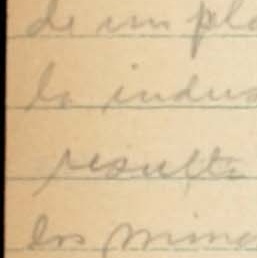 de un pla
la indus
resulta
los mine